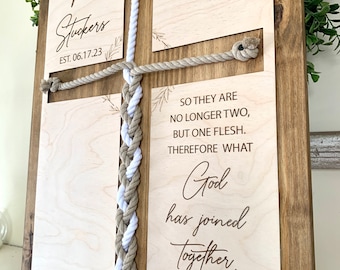 Stuckers
EST. 06.17.23
SO THEY ARE
NO LONGER TWO,
BUT ONE FLESH.
THEREFORE WHAT
God
has joined
together